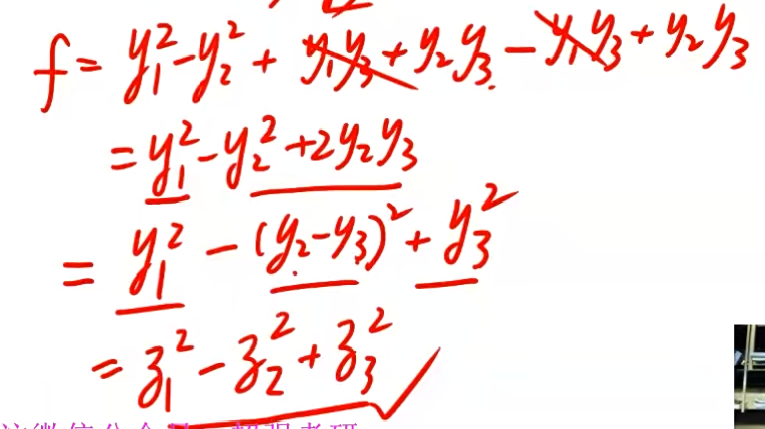 f = y₁² - y₂² + y₁y₃ + y₂y₃ - y₁y₃ + y₂y₃
= y₁² - y₂² + 2y₂y₃
= y₁² - (y₂ - y₃)² + y₃²
= z₁² - z₂² + z₃² ✓